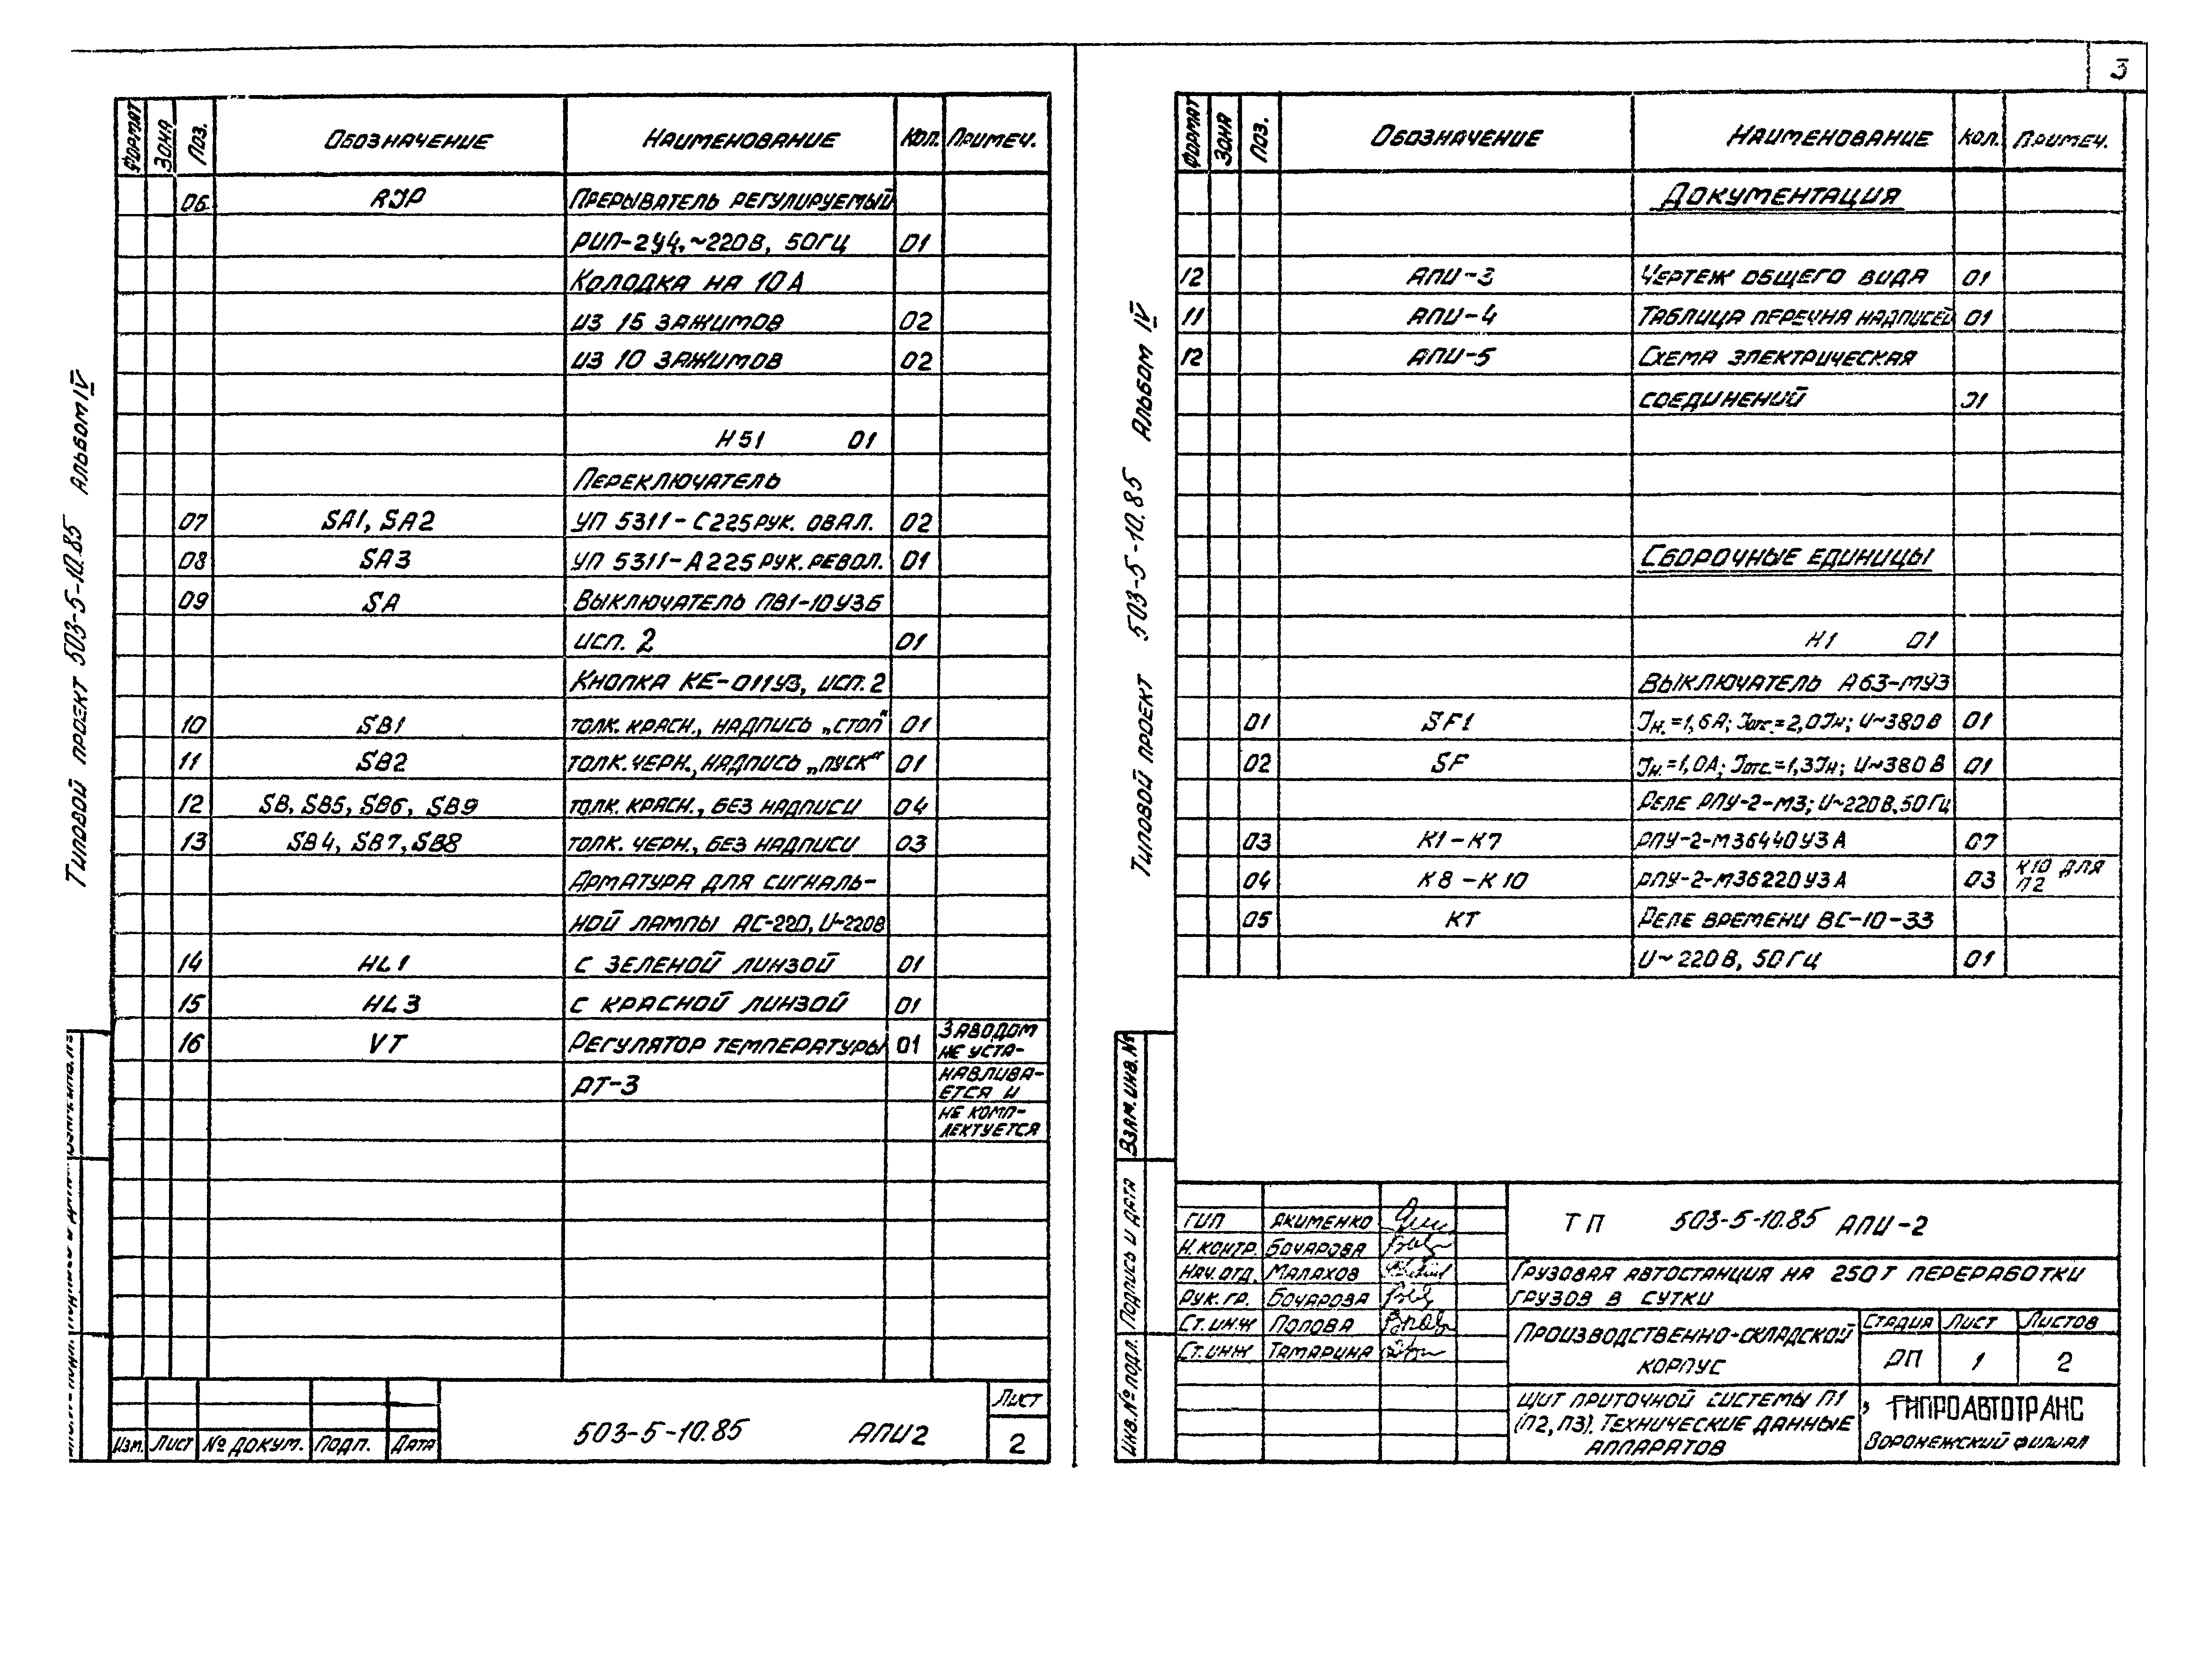 3
Типовой проект 503-5-10.85 Альбом IV
Формат Зона Поз. Обозначение Наименование Кол. Примеч.
06 RJP Прерыватель регулируемый
РИП-2У4, ~220В, 50Гц 01
Колодка на 10А
из 15 зажимов 02
из 10 зажимов 02
Н51 01
Переключатель
07 SA1, SA2 УП 5311-С225 рук. овал. 02
08 SA3 УП 5311-А225 рук. револ. 01
09 SA Выключатель ПВ1-10У3Б
исп. 2 01
Кнопка КЕ-011У3, исп. 2
10 SB1 толк. красн., надпись „стоп“ 01
11 SB2 толк. черн., надпись „пуск“ 01
12 SB, SB5, SB6, SB9 толк. красн., без надписи 04
13 SB4, SB7, SB8 толк. черн., без надписи 03
Арматура для сигналь-
ной лампы АС-220, U~220В
14 HL1 с зеленой линзой 01
15 HL3 с красной линзой 01
16 VT Регулятор температуры 01 Заводом
не уста-
РТ-3 навлива-
ется и
не комп-
лектуется
Изм. Лист № докум. Подп. Дата
503-5-10.85 АПИ2
Лист
2
Типовой проект 503-5-10.85 Альбом IV
Формат Зона Поз. Обозначение Наименование Кол. Примеч.
Документация
12 АПИ-3 Чертеж общего вида 01
11 АПИ-4 Таблица перечня надписей 01
12 АПИ-5 Схема электрическая
соединений 01
Сборочные единицы
Н1 01
Выключатель А63-МУ3
01 SF1 Iн.=1,6А; Iотс.=2,0Iн; U~380В 01
02 SF Iн.=1,0А; Iотс.=1,3Iн; U~380В 01
Реле РПУ-2-М3; U~220В, 50Гц
03 К1-К7 РПУ-2-М36440У3А 07
04 К8-К10 РПУ-2-М36220У3А 03 К10 для
П2
05 КТ Реле времени ВС-10-33
U~220В, 50Гц 01
Взам. инв. №
Подпись и дата
Инв. № подл.
ГИП Якименко
Н. контр. Бочарова
Нач. отд. Малахов
Рук. гр. Бочарова
Ст. инж Попова
Ст. инж Тамарина
ТП 503-5-10.85 АПИ-2
Грузовая автостанция на 250т переработки
грузов в сутки
Производственно-складской
корпус
Стадия Лист Листов
РП 1 2
Щит приточной системы П1
(П2, П3). Технические данные
аппаратов
ГИПРОАВТОТРАНС
Воронежский филиал